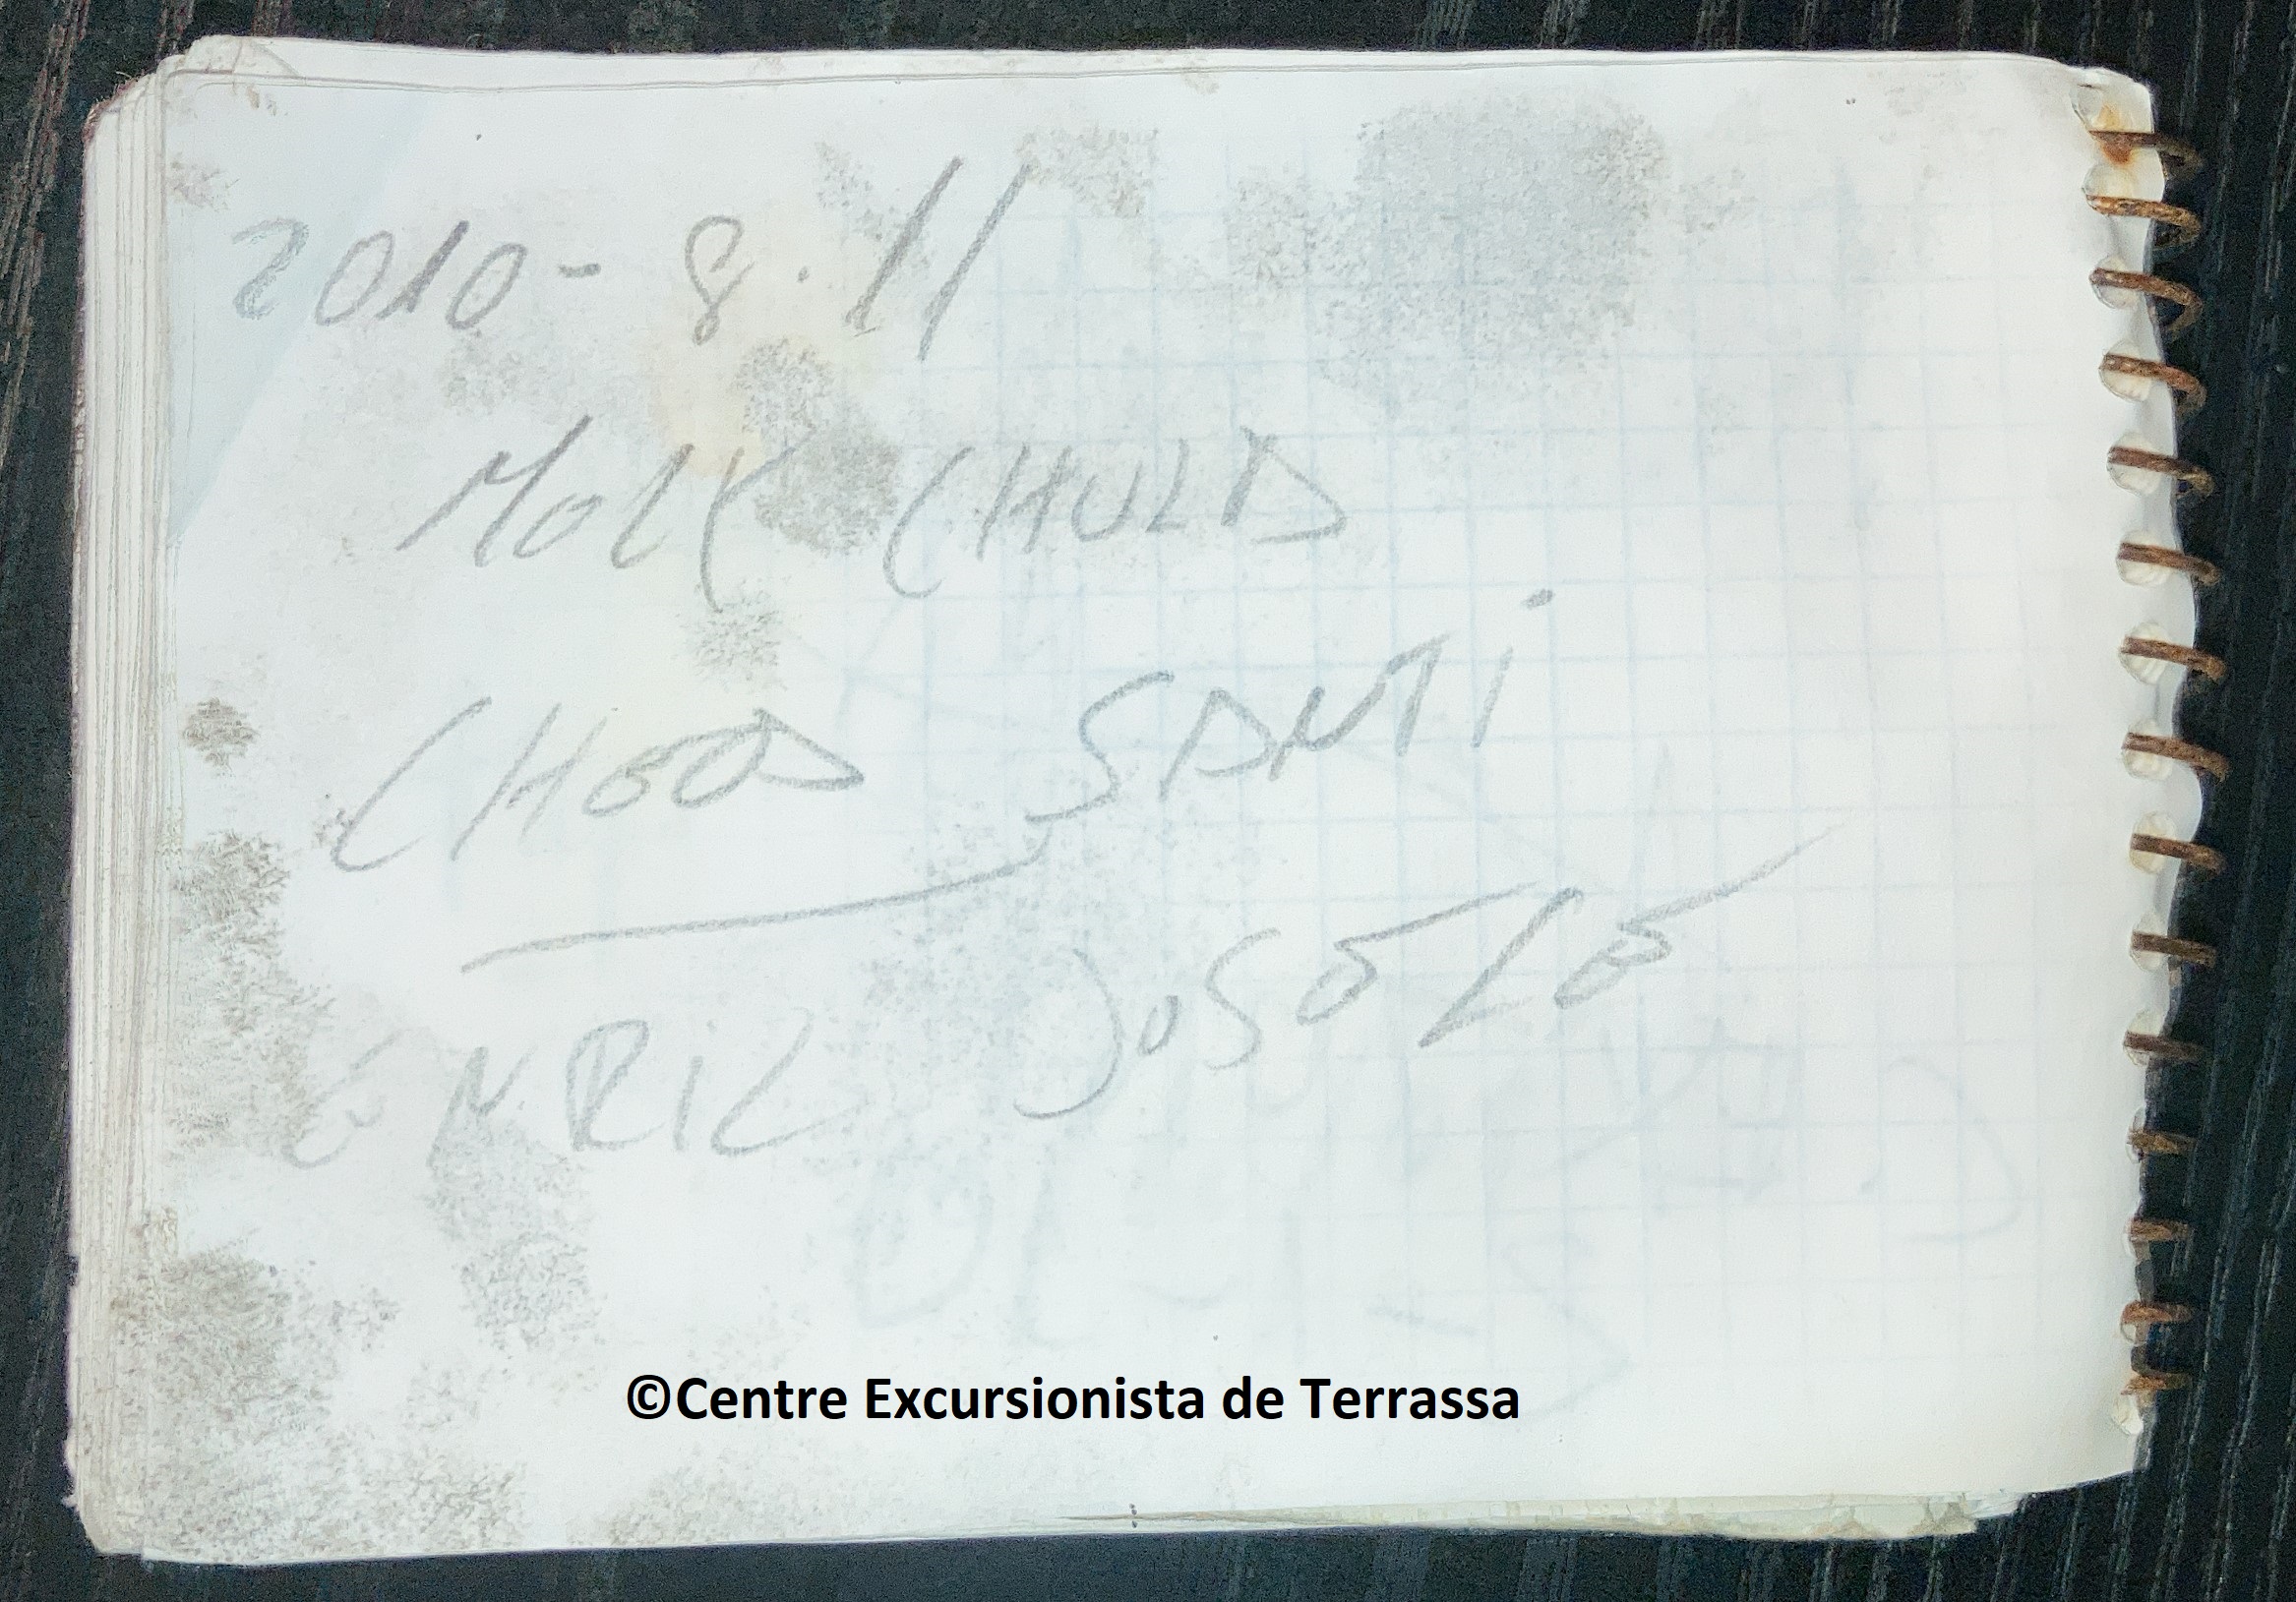 2010-8.11
MOLT CHULA
CHEOA SANTI
ENRIC JOSETE
©Centre Excursionista de Terrassa